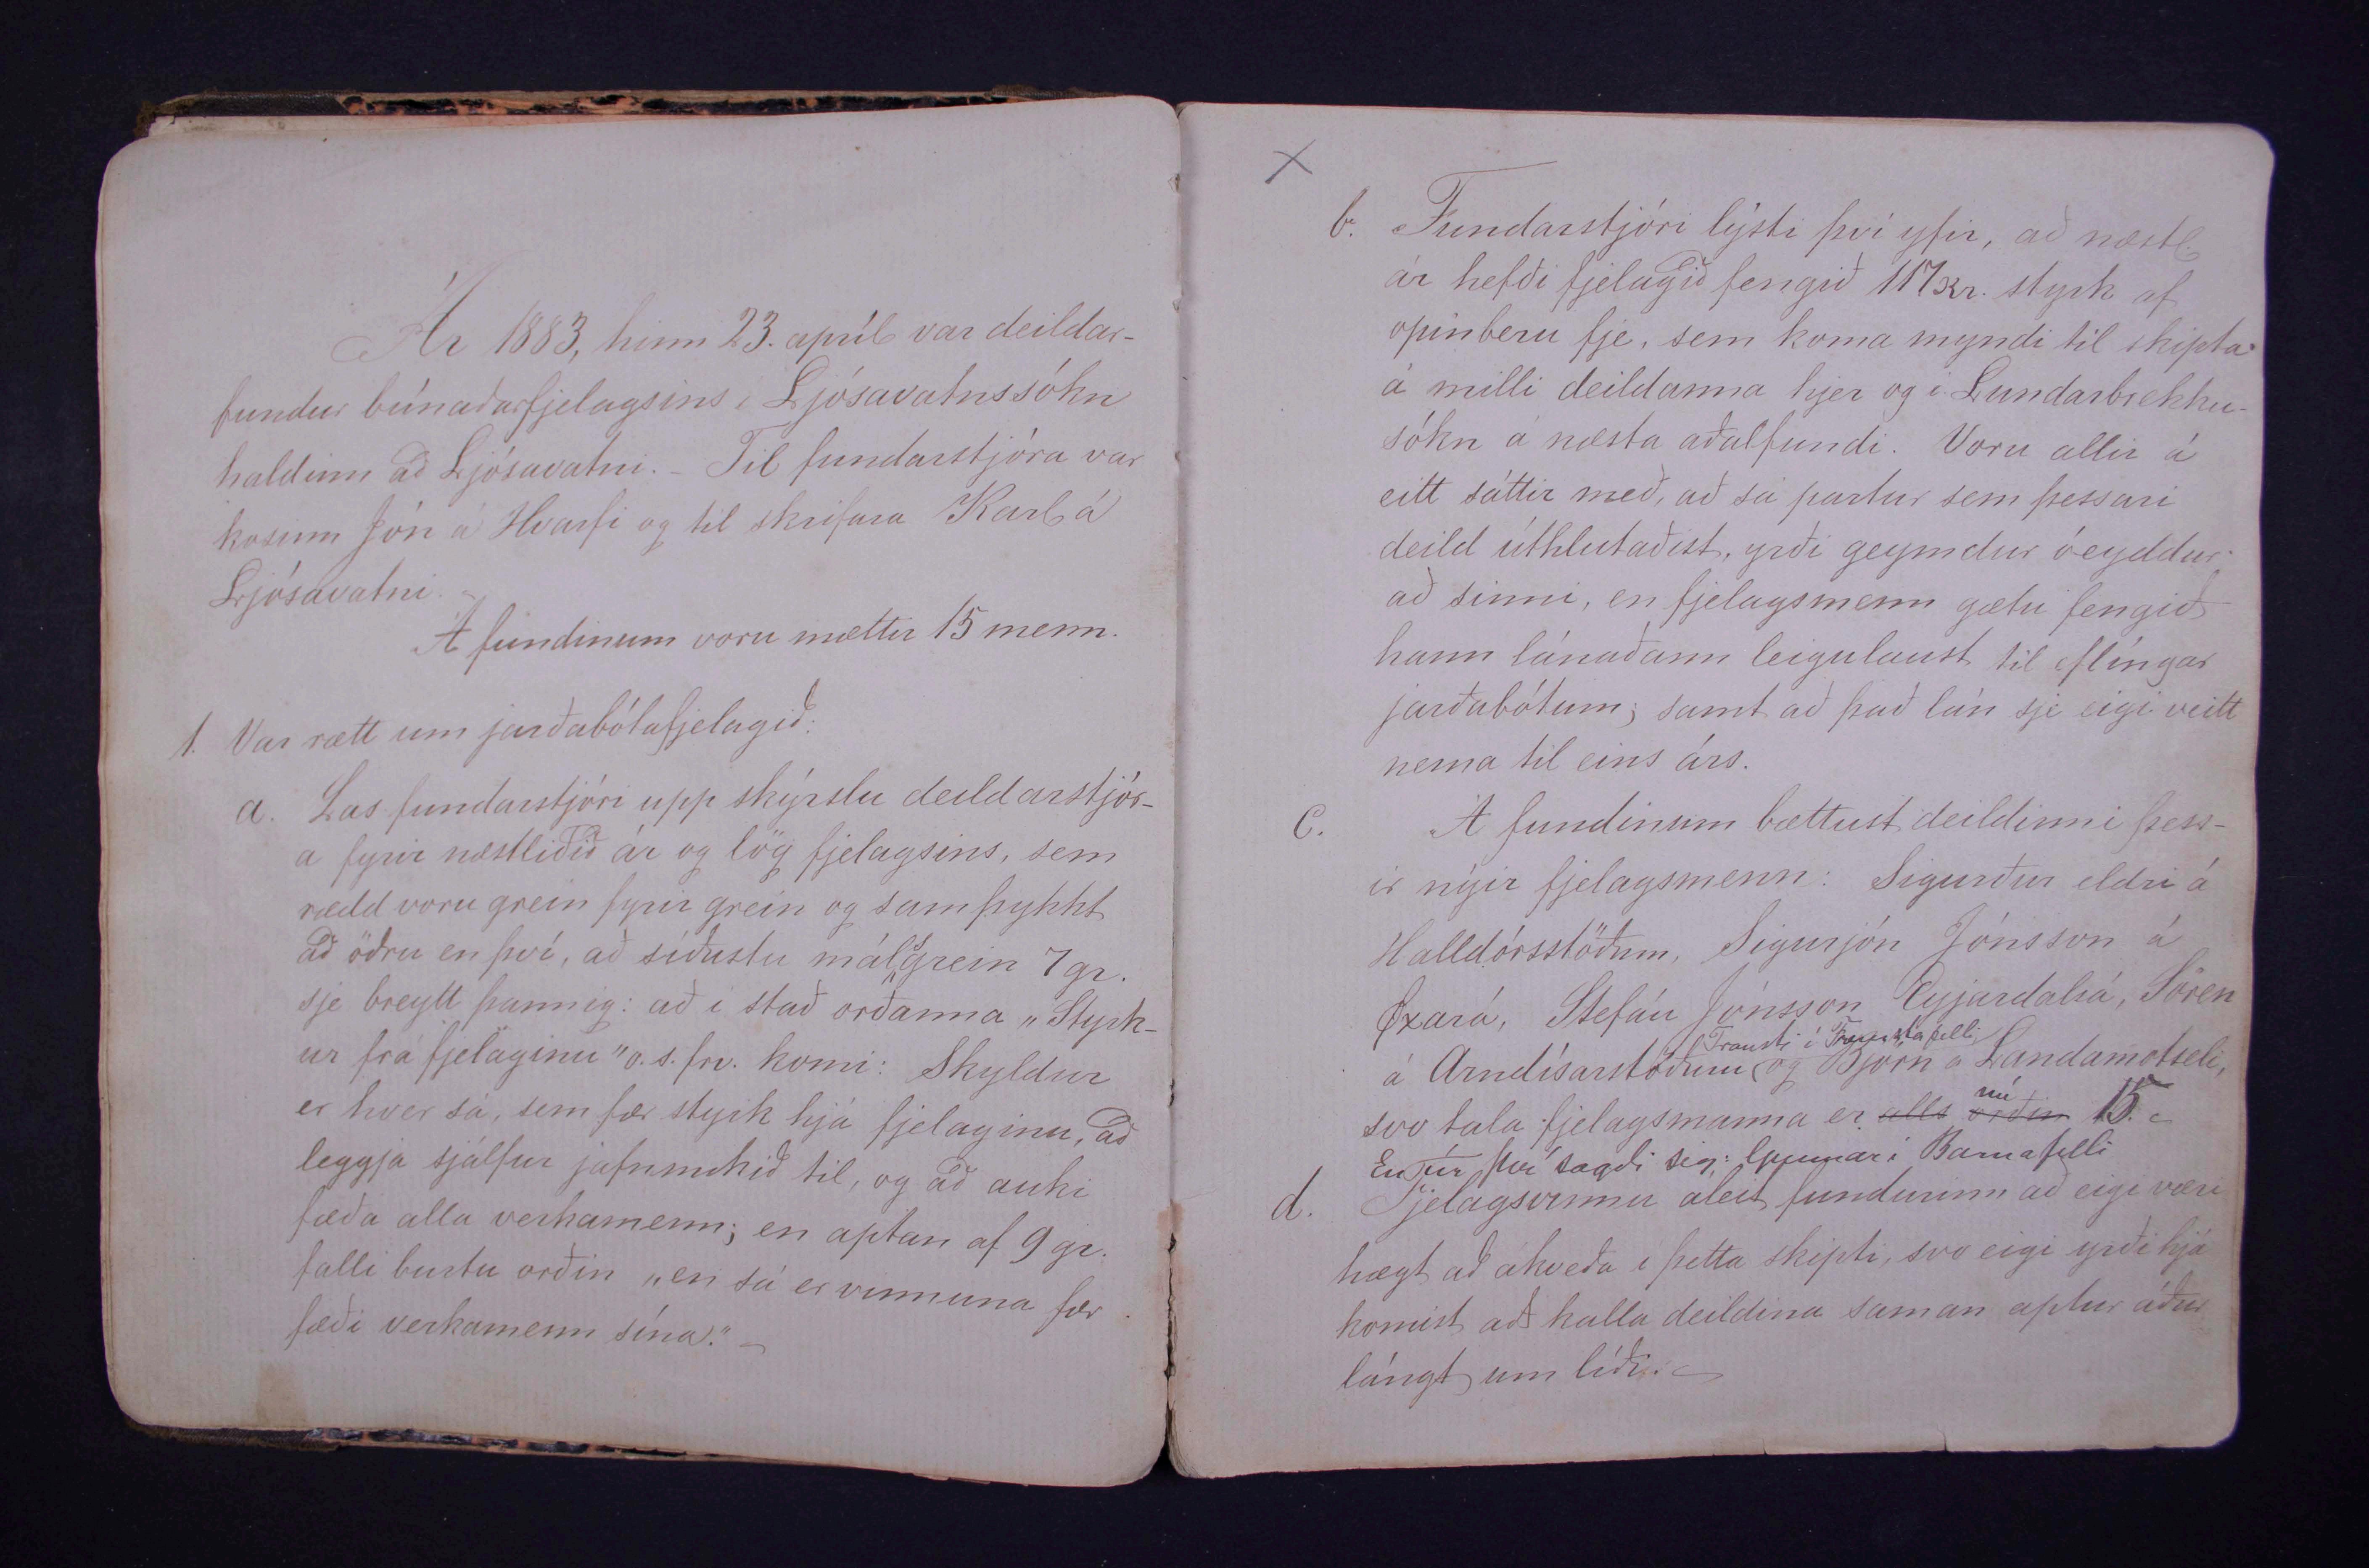 Ár 1883, hinn 23. apríl var deildar-
fundur búnaðarfjelagsins í Ljósavatnssókn
haldinn að Ljósavatni. - Til fundarstjóra var
kosinn Jón á Hvarfi og til skrifara Karl á
Ljósavatni. -
Á fundinum voru mættir 15 menn.
1. Var rætt um jarðabótafjelagið:
a. Las fundarstjóri upp skýrslu deildarstjór-
a fyrir næstliðið ár og lög fjelagsins, sem
rædd voru grein fyrir grein og samþykkt
að öðru en því, að síðustu málsgrein 7 gr.
sje breytt þannig: að í stað orðanna „Styrk-
ur frá fjelaginu" o. s. frv. komi: Skyldur
er hver sá, sem fær styrk hjá fjelaginu, að
leggja sjálfur jafnmikið til, og að auki
fæða alla verkamenn; en aptan af 9 gr.
falli burtu orðin „en sá er vinnuna fær
fæði verkamenn sína." -
X
b. Fundarstjóri lýsti því yfir, að næstl.
ár hefði fjelagið fengið 117 Kr. styrk af
opinberu fje, sem koma myndi til skipta
á milli deildanna hjer og í Lundarbrekku-
sókn á næsta aðalfundi. Voru allir á
eitt sáttir með, að sá partur sem þessari
deild úthlutaðist, yrði geymdur óeyddur
að sinni, en fjelagsmenn gætu fengið
hann lánaðann leigulaust til eflíngar
jarðabótum; samt að það lán sje eigi veitt
nema til eins árs.
c. Á fundinum bættust deildinni þess-
ir nýir fjelagsmenn: Sigurður eldri á
Halldórsstöðum, Sigurjón Jónsson á
Øxará, Stefán Jónsson Eyjardalsá, Sören
Trausti í Fremstafelli
á Arndísarstöðum og Björn á Landamotseli,
nú
svo tala fjelagsmanna er alls orðin 15. -
En úr því sagði sig: í Barnafelli
d. Fjelagsvinnu áleit fundurinn að eigi væri
hægt að ákveða í þetta skipti, svo eigi yrði hjá
komist að kalla deildina saman aptur áður
lángt um líði. -